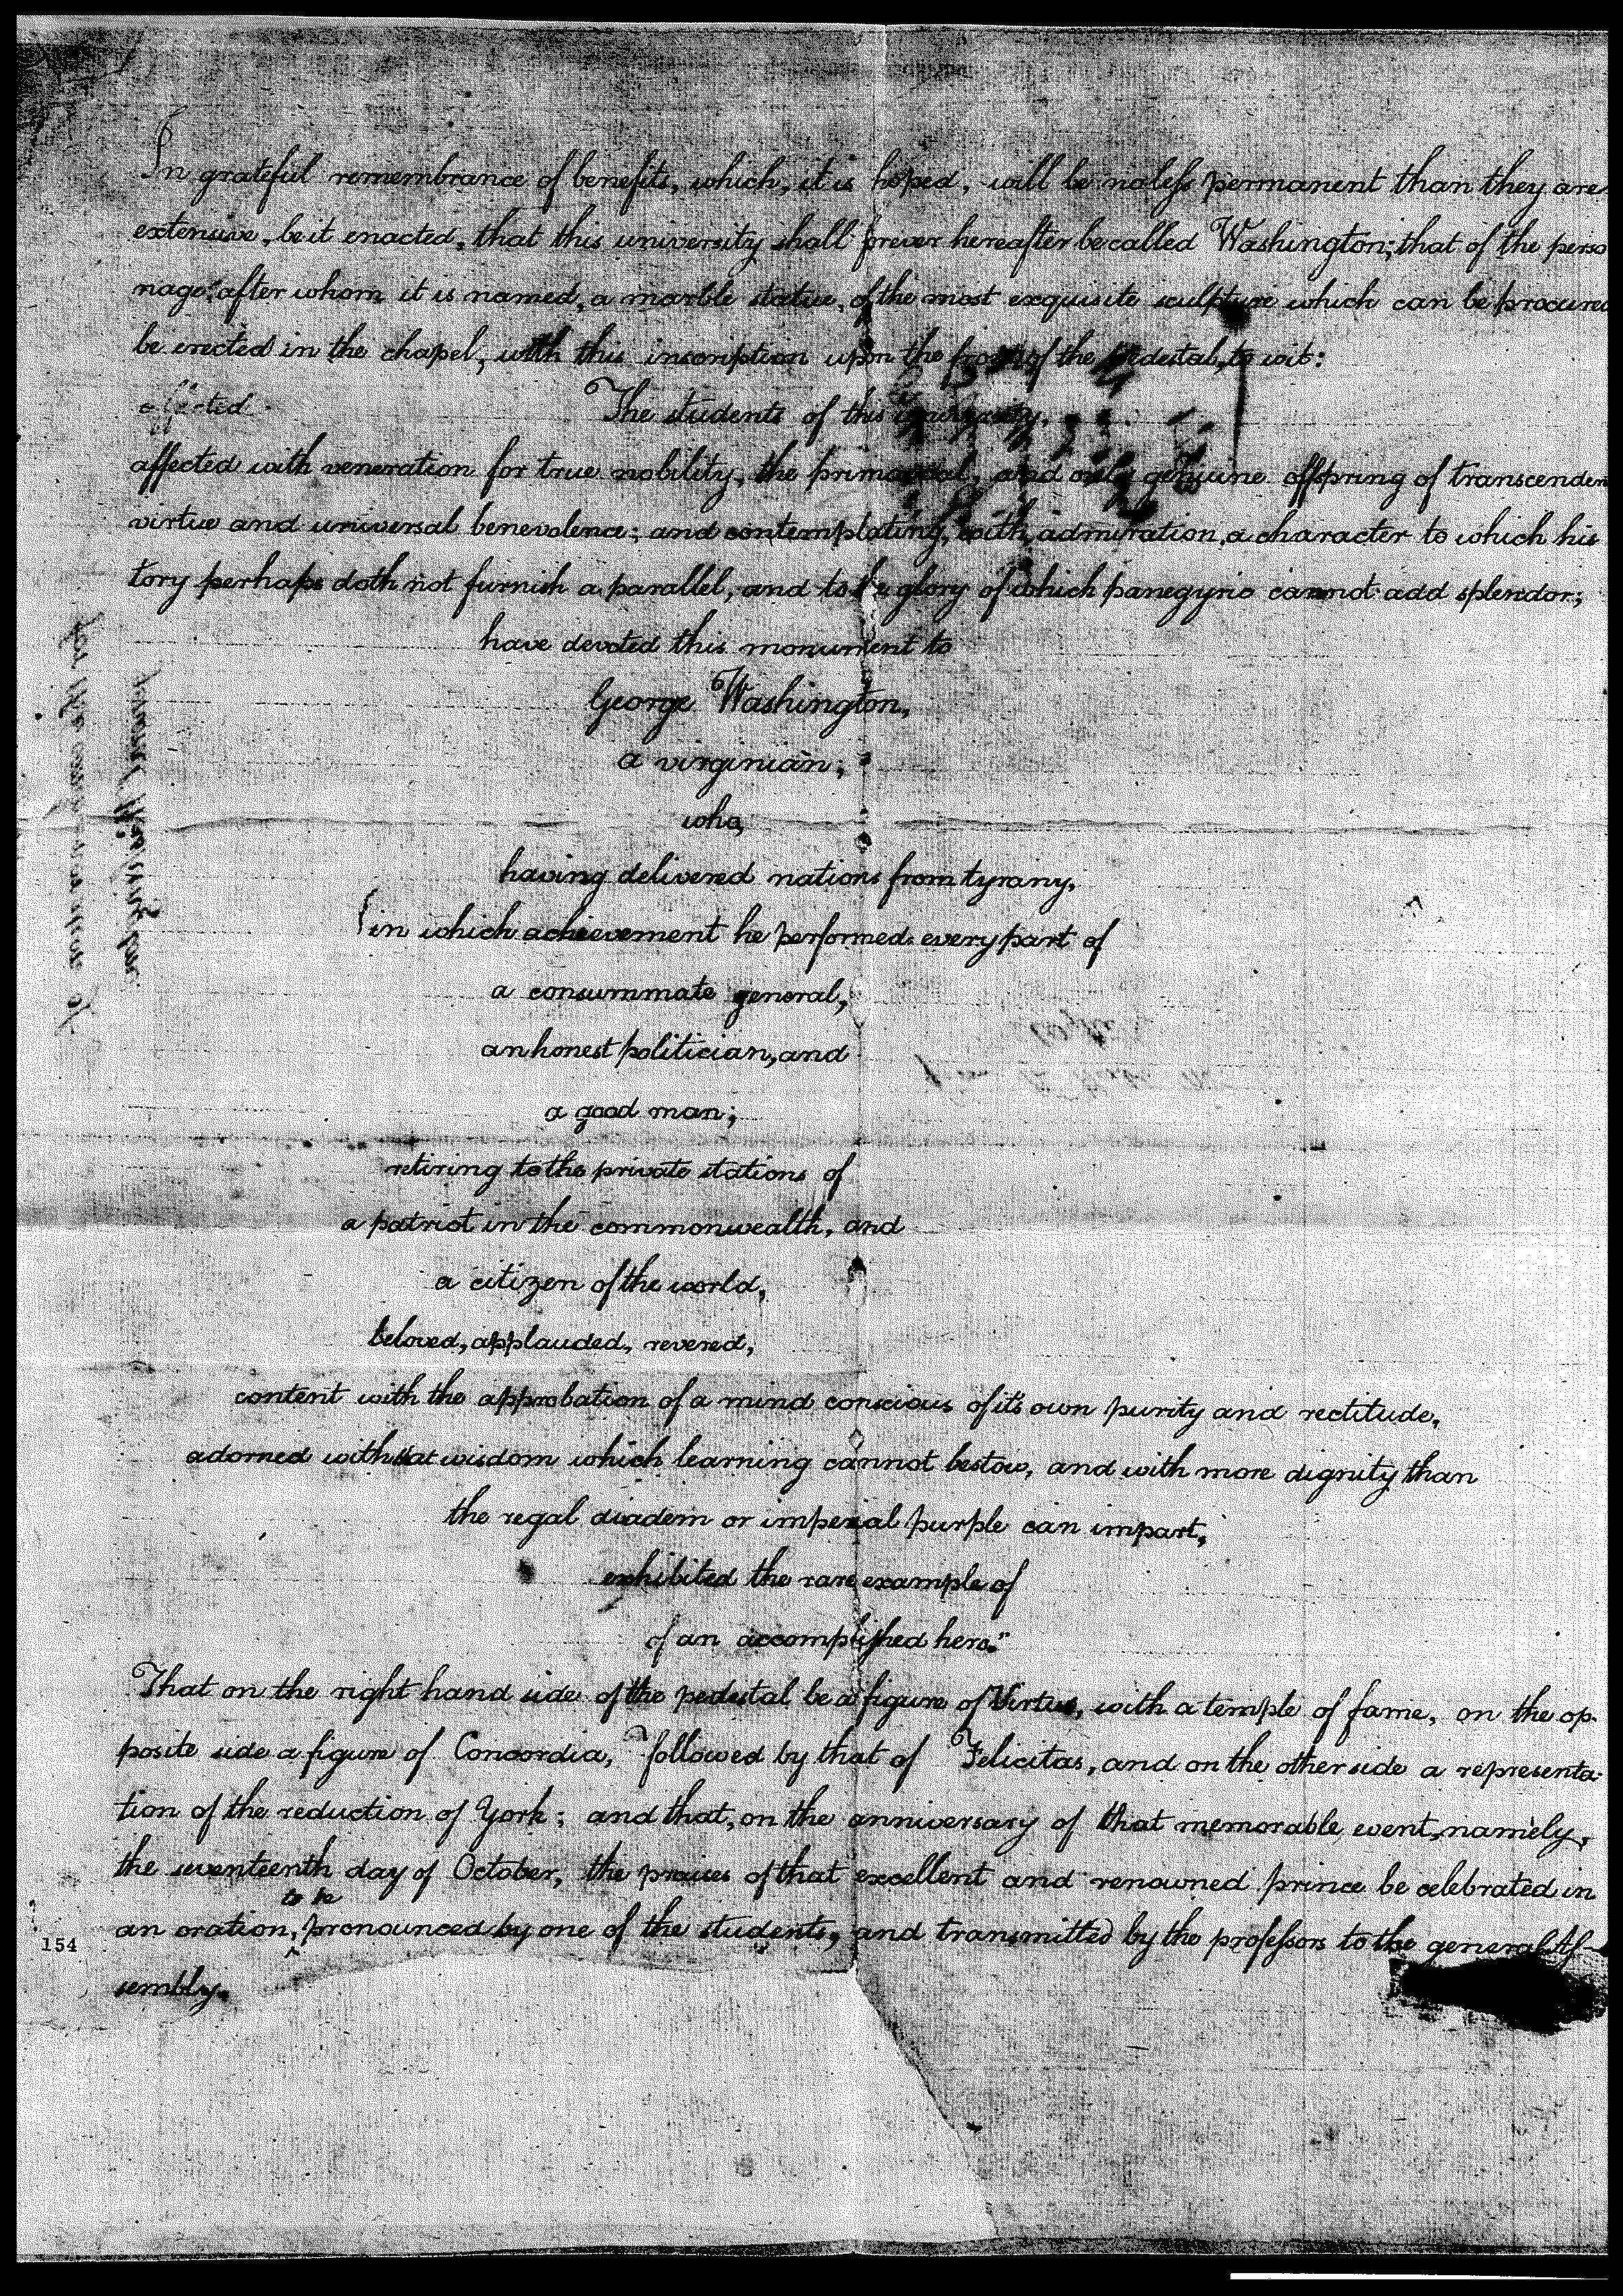 In grateful remembrance of benefits, which, it is hoped, will be no less permanent than they are
extensive, be it enacted, that this university shall forever hereafter be called Washington; that of the perso
nage, after whom it is named, a marble statue, of the most exquisite sculpture which can be procured
be erected in the chapel, with this inscription upon the front of the pedestal, to wit:
affected
The students of this university,
affected with veneration for true nobility, the primaeval, and only genuine offspring of transcenden
virtue and universal benevolence; and contemplating, with admiration, a character to which his
tory perhaps doth not furnish a parallel, and to the glory of which panegyric cannot add splendor;
have devoted this monument to
George Washington,
a virginian;
who,
having delivered nations from tyrany,
(in which achievement he performed every part of
a consummate general,
an honest politician, and
a good man;
retiring to the private stations of
a patriot in the commonwealth, and
a citizen of the world,
beloved, applauded, revered,
content with the approbation of a mind conscious of it's own purity and rectitude,
adorned with that wisdom which learning cannot bestow, and with more dignity than
the regal diadem or imperial purple can impart,
exhibited the rare example of
of an accomplished hero."
That on the right hand side of the pedestal be a figure of Virtus, with a temple of fame, on the op-
posite side a figure of Concordia, followed by that of Felicitas, and on the other side a representa-
tion of the reduction of York; and that, on the anniversary of that memorable event, namely,
the seventeenth day of October, the praises of that excellent and renowned prince be celebrated in
to be
an oration, ^ pronounced by one of the students, and transmitted by the professors to the general As-
154
sembly.